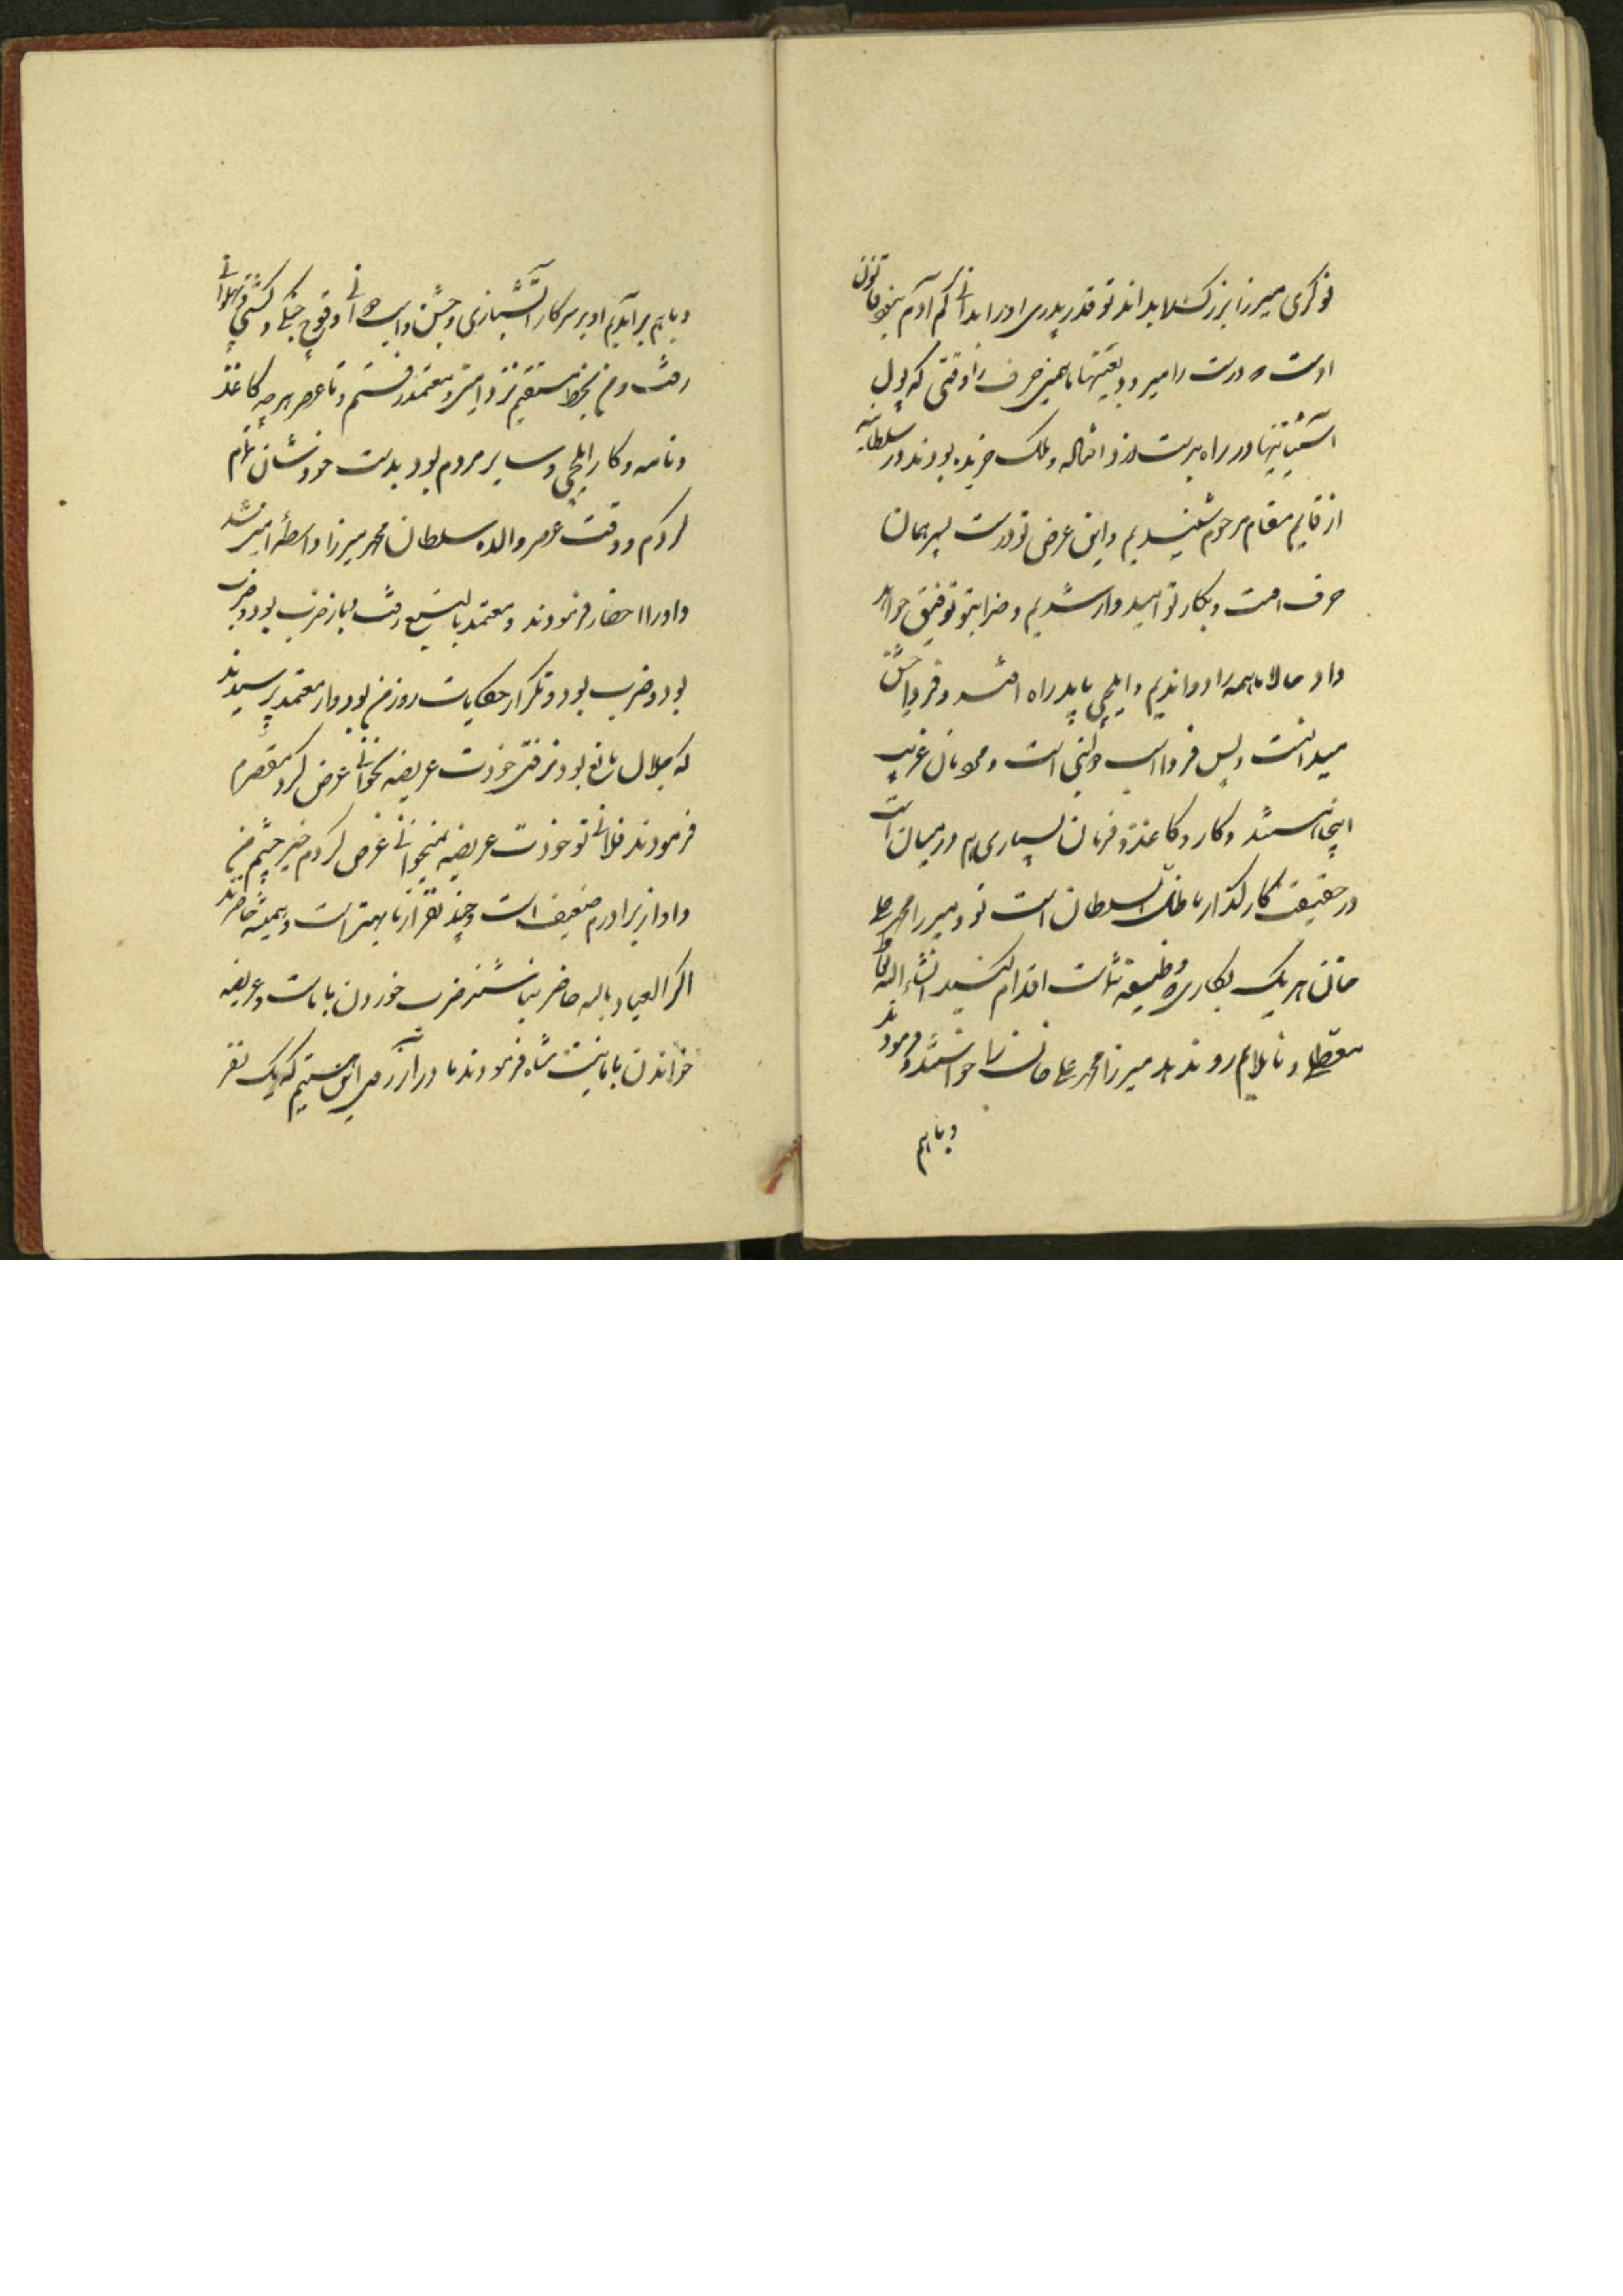 نوکری میرزا بزرگ را بداند تو قدر پدری او را بدانی کم آدم بقانون
اوست و درست را میرود بعینها با همین حرف را وقتی که پول
آشتیانیها در راه بدست دزد افتاد و ملک خریده بودند در سلطانیه
از قایم مقام مرحوم شنیدیم و این عرض تو درست پس همان
حرف است و بکار تو امیدوار شدیم و خدا بتو توفیق خواهد
داد حالا ما همه را دواندیم و ایلچی باید راه افتد و فردا جشن
میدانست و پس فردا اسب دوانی است و مهمانان غریب
اینجا هستند و کار و کاغذ و فرمان بسیاری هم در میان است
در حقیقت کارگذار ما ظل السلطان است تو و میرزا محمد علی
خان هر یک بکاری و وظیفه تان است اقدام کنید انشاء الله تعالی
معطلی و ناملایم رو ندهد میرزا محمد علی خان را خواستند و فرمودند
و باهم
و باهم برآمدیم او بر سر کار آتشبازی و جشن و اسب دوانی و قوچ جنگی و کشتی پهلوانی
رفت و من بخط مستقیم نزد امین و معتمد رفتم و تا عصر هر چه کاغذ
و نامه و کار ایلچی و سایر مردم بود بدست خودشان تمام
کردم و وقت عصر والده سلطان محمد میرزا واسطه امین شد
و او را احضار فرمودند و معتمد بالتبع رفت و باز ضرب بود و ضرب
بود و ضرب بود و تکرار حکایات روز من بود و از معتمد پرسیدند
که جلال مانع بود نرفتی خودت عریضه بخوانی عرض کرد مقصرم
فرمودند فلانی تو خودت عریضه نمیخوانی عرض کردم خیر چشم من
و او از برادرم ضعیف است و چند نفر از ما بهتر است و همیشه حاضرند
اگر العیاذ بالله حاضر نباشند ضرب خوردن با ماست و عریضه
خواندن با ما نیست شاه فرمودند ما در آرزوی این هستیم که یک نفر